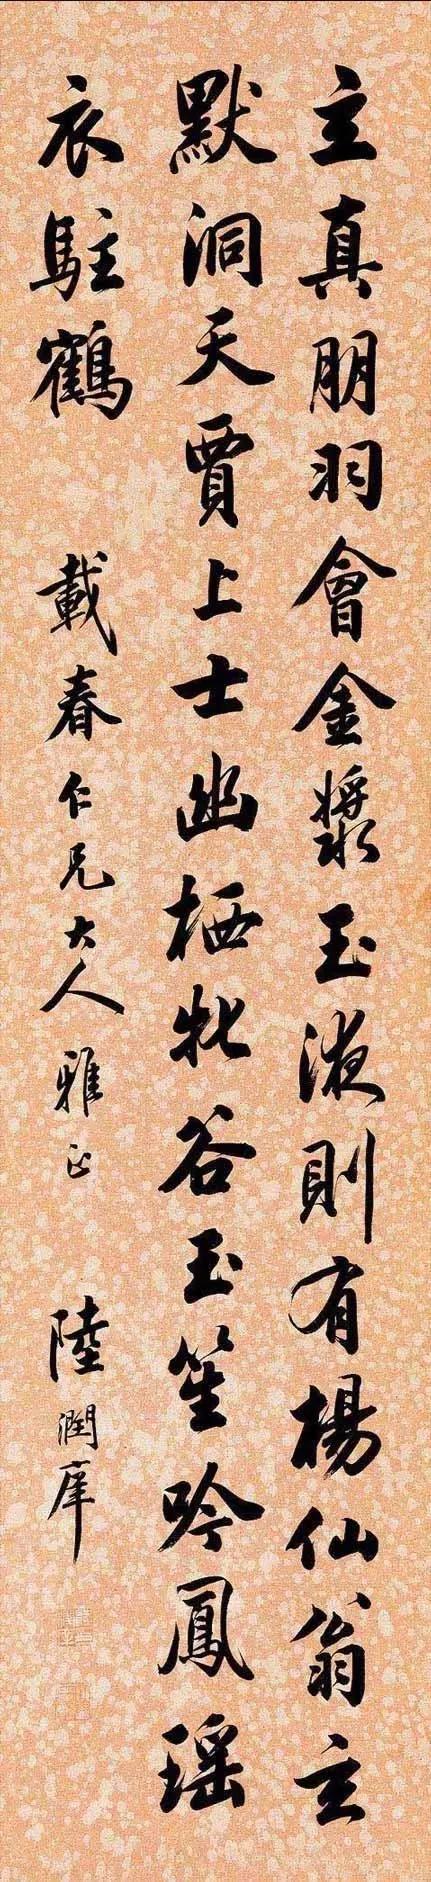 主真朋羽會金漿玉液則有楊仙翁主
默洞天賈上士幽栖牝谷玉笙吟鳳瑤
衣駐鶴
載春仁兄大人雅正
陸潤庠